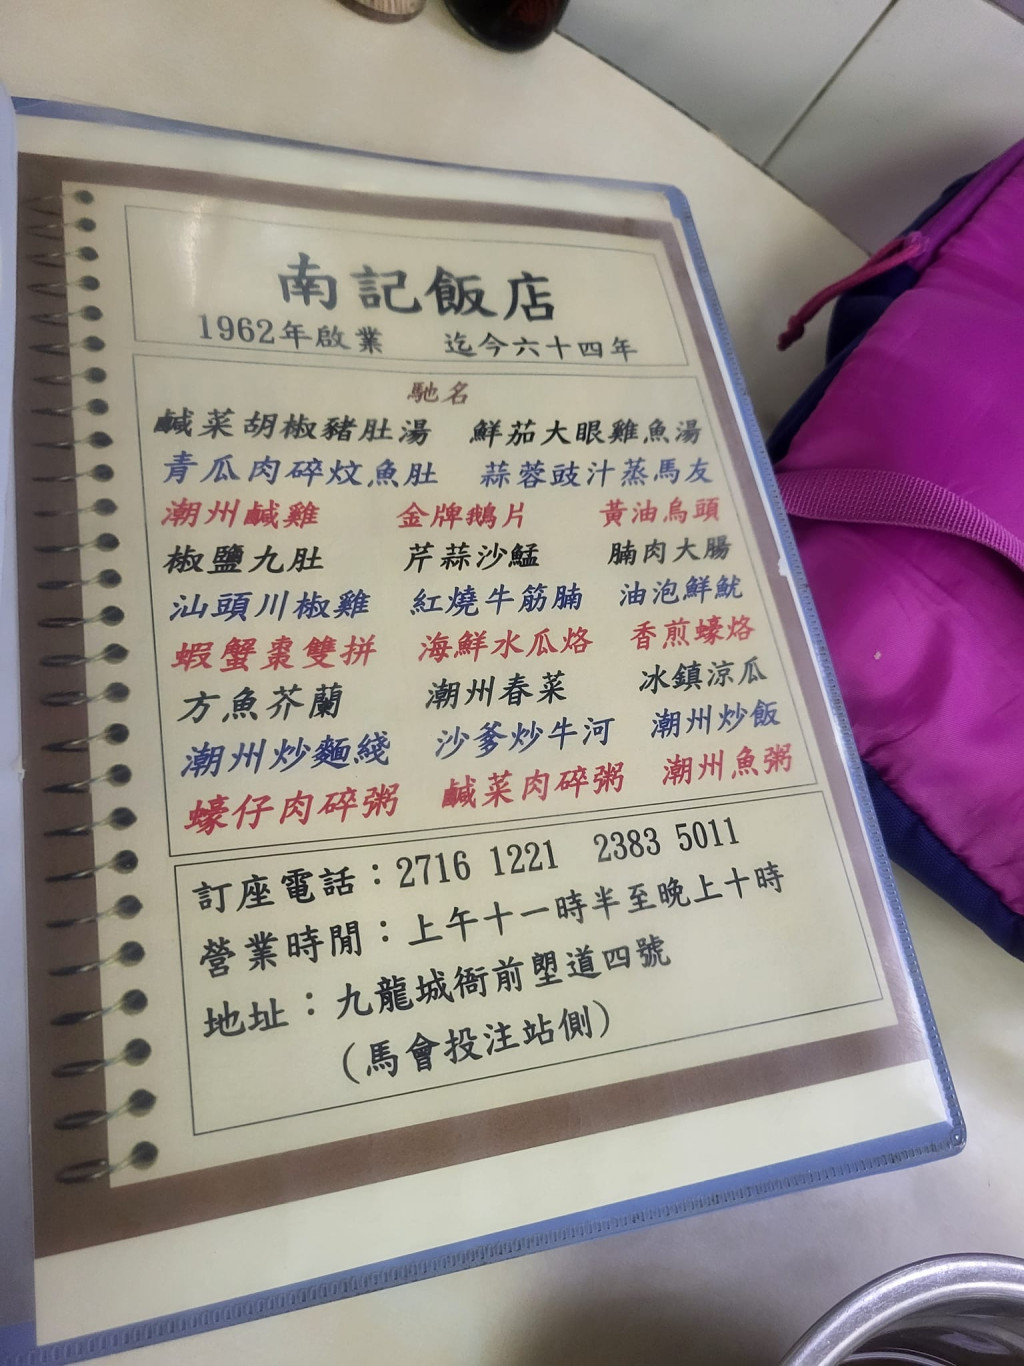 南記飯店
1962年啟業 迄今六十四年
馳名
鹹菜胡椒豬肚湯 鮮茄大眼雞魚湯
青瓜肉碎炆魚肚 蒜蓉豉汁蒸馬友
潮州鹹雞 金牌鵝片 黃油烏頭
椒鹽九肚 芹蒜沙鯭 腩肉大腸
汕頭川椒雞 紅燒牛筋腩 油泡鮮魷
蝦蟹棗雙拼 海鮮水瓜烙 香煎蠔烙
方魚芥蘭 潮州春菜 冰鎮涼瓜
潮州炒麵綫 沙爹炒牛河 潮州炒飯
蠔仔肉碎粥 鹹菜肉碎粥 潮州魚粥
訂座電話：2716 1221 2383 5011
營業時間：上午十一時半至晚上十時
地址：九龍城衙前塱道四號
（馬會投注站側）